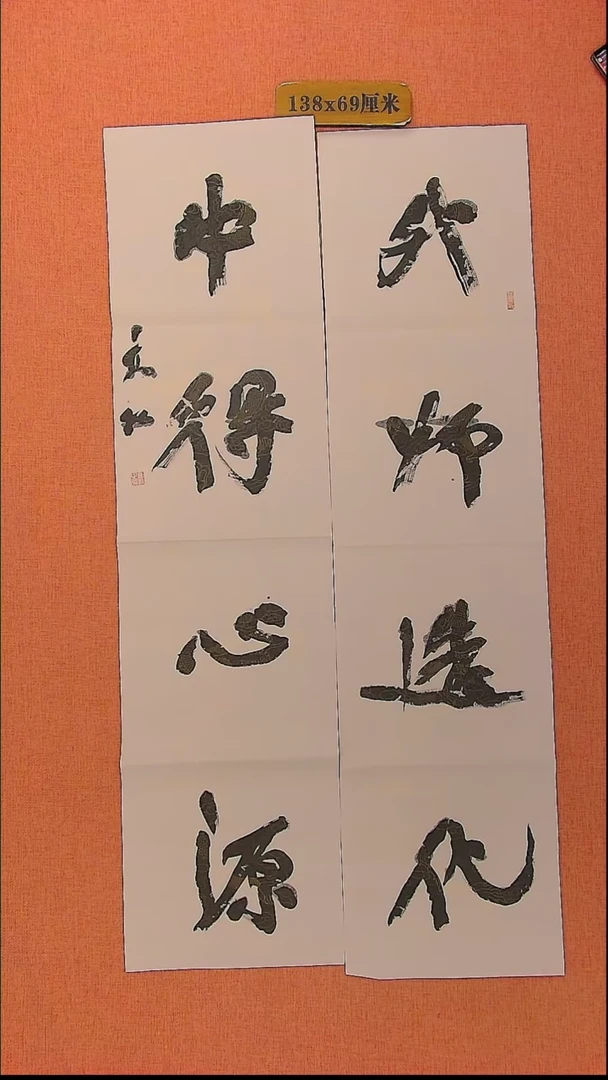 138x69厘米
外师造化
中得心源